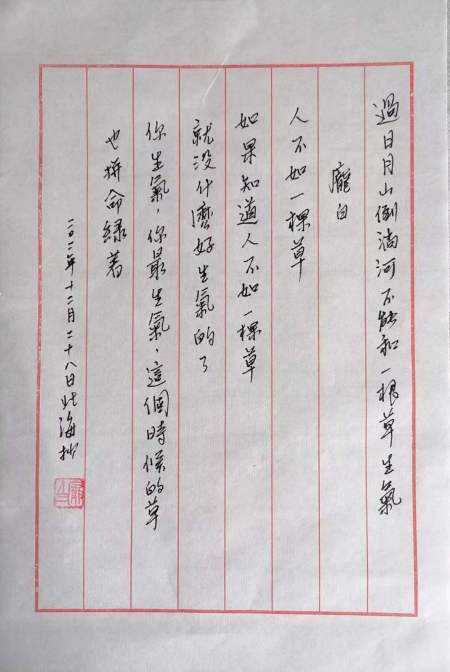 過日月山倒淌河不能和一根草生氣
龐白
人不如一棵草
如果知道人不如一棵草
就没什麼好生氣的了
你生氣，你最生氣，這個時候的草
也拼命緑著
二〇二一年十二月二十八日北海抄